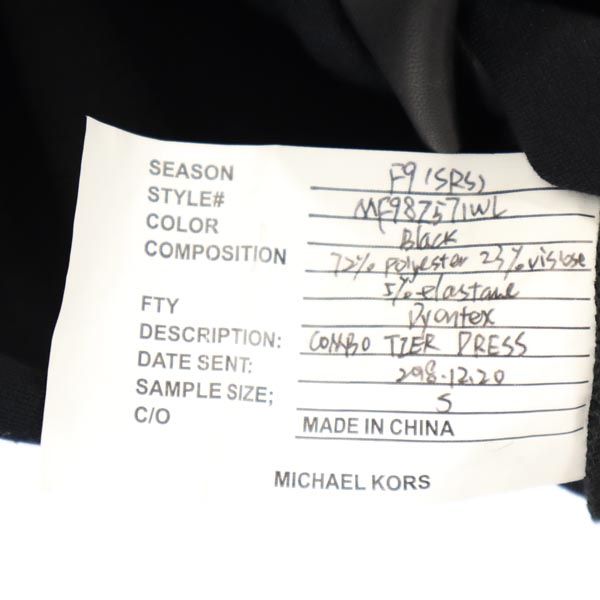 SEASON F9 (SRS)
STYLE# MF987571WL
COLOR Black
COMPOSITION 72% polyester 23% vislose
5% elastane
FTY Dyontex
DESCRIPTION: COMBO TIER DRESS
DATE SENT: 2018.12.20
SAMPLE SIZE; S
C/O MADE IN CHINA
MICHAEL KORS